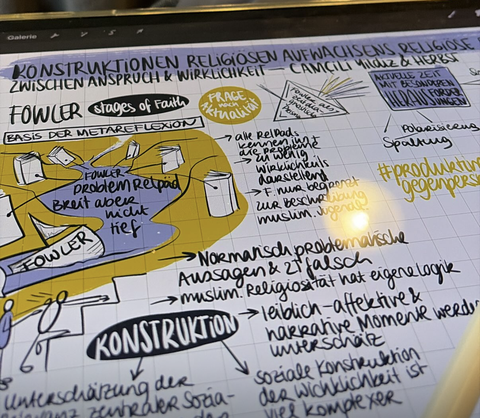 Galerie
KONSTRUKTIONEN RELIGIÖSEN AUFWACHSENS RELIGIÖSE
ZWISCHEN ANSPRUCH & WIRKLICHKEIT — CAMCILI YILDIZ & HERBST
FOWLER stages of Faith
BASIS DER METAREFLEXION
FRAGE
nach
Aktualität
AKTUELLE ZEIT
MIT BESONDEREN
HERAUSFORDERUNGEN
Polarisierung
Spaltung
#produktive
gegenpers
→ alle RelPäds
kennen ihn
zu wenig
Wirklichkeits
darstellend
→ F. nur begrenzt
zur Beschreibung
muslim. Jugendl.
FOWLER
problem Relpäd
Breit aber
nicht
tief
FOWLER
→ Normativ problematische
Aussagen & zT falsch
→ muslim. Religiosität hat eigene Logik
KONSTRUKTION
→ leiblich-affektive &
narrative Momente werden
unterschätz
soziale Konstruktion
der Wirklichkeit ist
viel komplexer
Unterschätzung der
Relevanz zentraler Sozia-